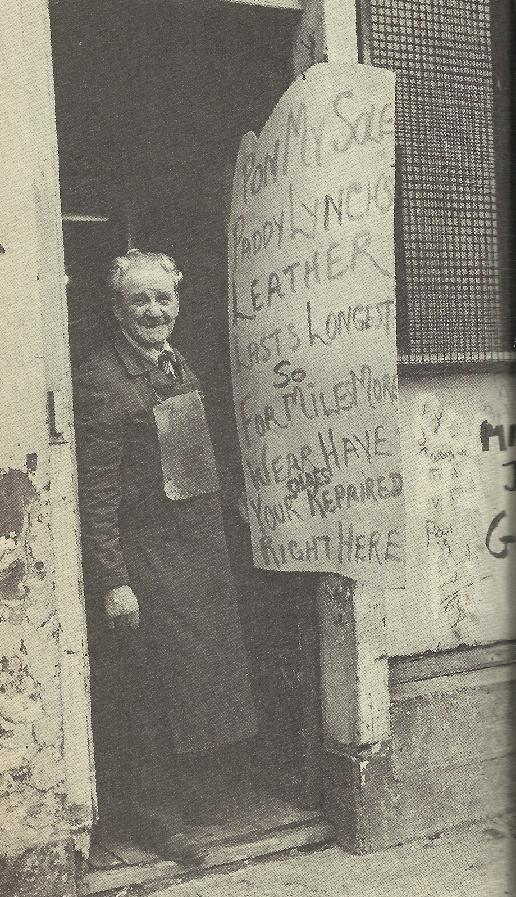 PON MY SOLE
PADDY LYNCH'S
LEATHER
LASTS LONGEST
SO
FOR MILE MORE
WEAR HAVE
SHOES
YOUR REPAIRED
RIGHT HERE
M
J
G